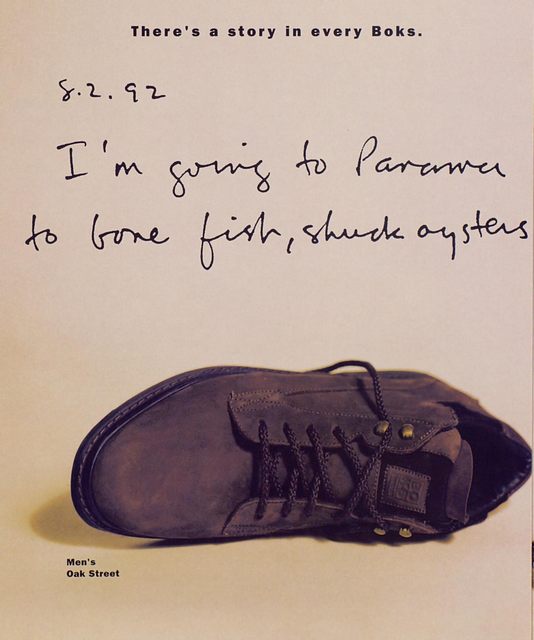 There's a story in every Boks.
8.2.92
I'm going to Panama
to bone fish, shuck oysters
Men's
Oak Street